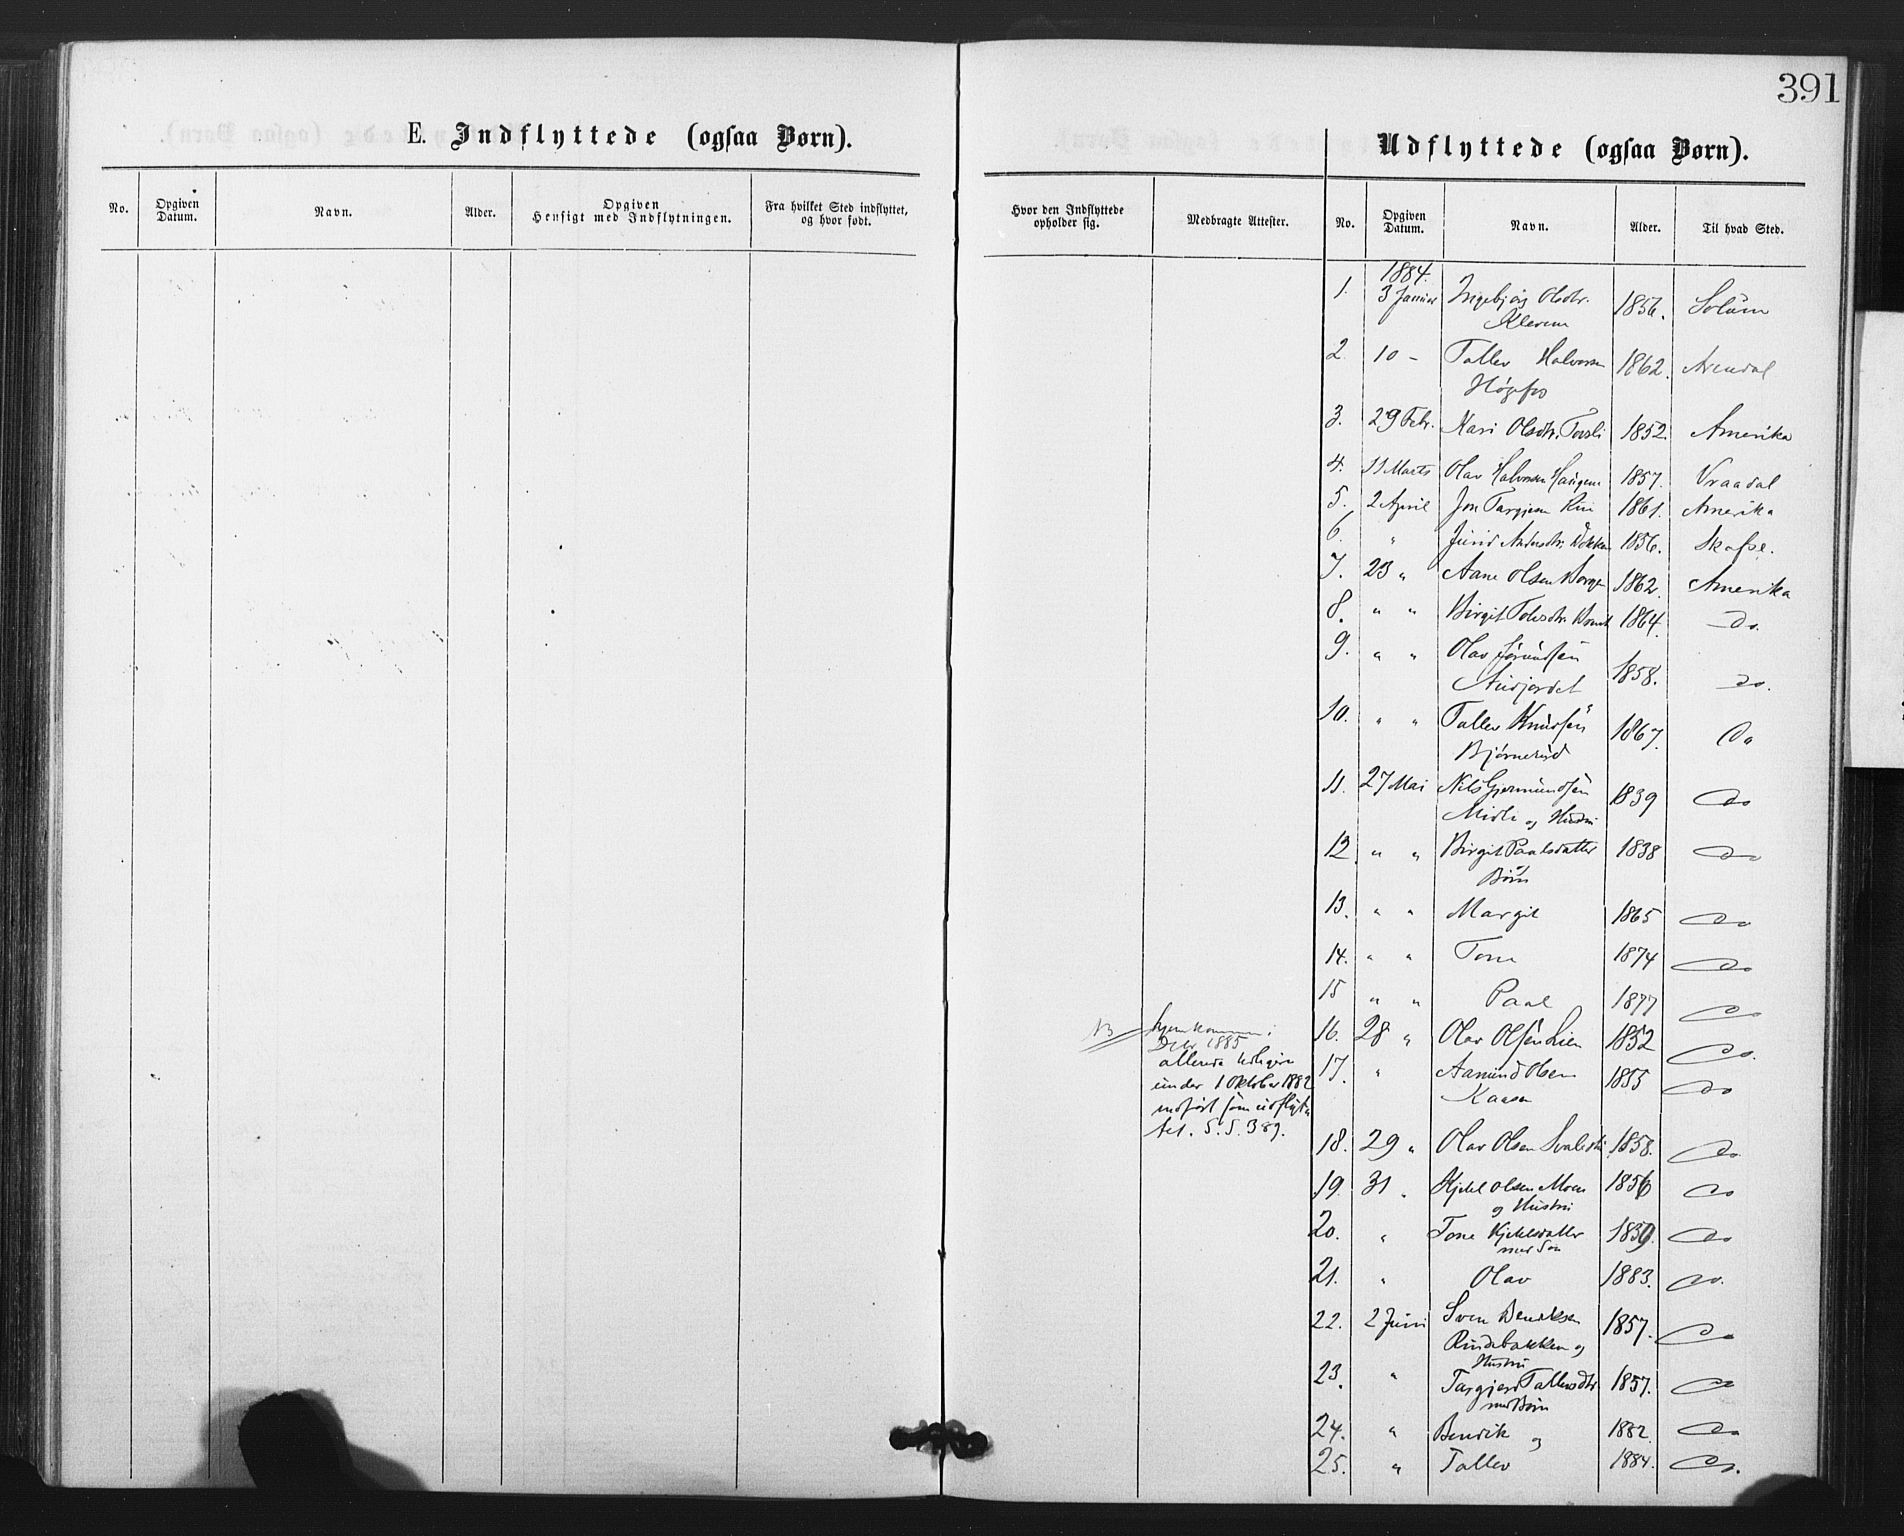 391
E. Indflyttede (ogsaa Børn).
No. Opgiven Datum. Navn. Alder. Opgiven Hensigt med Indflytningen. Fra hvilket Sted indflyttet, og hvor født.
Udflyttede (ogsaa Børn).
Hvor den Indflyttede opholder sig. Medbragte Attester. No. Opgiven Datum. Navn. Alder. Til hvad Sted.
1884.
1. 3 Januar Ingebjørg Olsdtr. 1856. Solum
Kleven
2. 10 - Tallev Halvorsen 1862. Arendal
Høgefos
3. 29 Febr. Kari Olsdtr. 1852. Amerika
4. 11 Marts Olav Halvorsen Haugen 1857. Vraadal
5. 2 April Jon Targjesen 1861. Amerika
6. " Jurid Andersdtr. Bakken 1856. Skafse.
7. 23 " Aane Olsen 1862. Amerika
8. " " Birgit 1864. do.
9. " " Olav Jörundsen 1858. do.
10. " " Tallev Knudsen 1867. do
Bjørnerud
11. 27 Mai Nils Gjermundsen 1839 do
Midli og Hustru
12. " " Birgit Paalsdatter 1838 do
Børn
13. " " Margit 1865 do
14. " " Tone 1874 do
15 " " Paal 1877 do
NB hjemkommen i
Dcbr 1885
allerede tidligere
under 1 Oktober 1882
indført som udflyt-
tet. S. S. 389.
16. 28 " Olav Olsen Lien 1852 do.
17. " Aamund Olsen 1855 do
Kaasa
18. 29 " Olav Olsen 1858. do
19. 31 " Kjetil Olsen Moen 1856 do
og Hustru
20. " Tone Kjetilsdatter 1839. do
med Søn
21. " Olav 1883. do.
22. 2 Juni Sven Bendiksen 1857. do
Rindebakken og
Hustru
23. " Targjerd Tallevsdtr 1857. do
med Børn
24. " Bendik og 1882. do
25. " Tallev 1884. do.